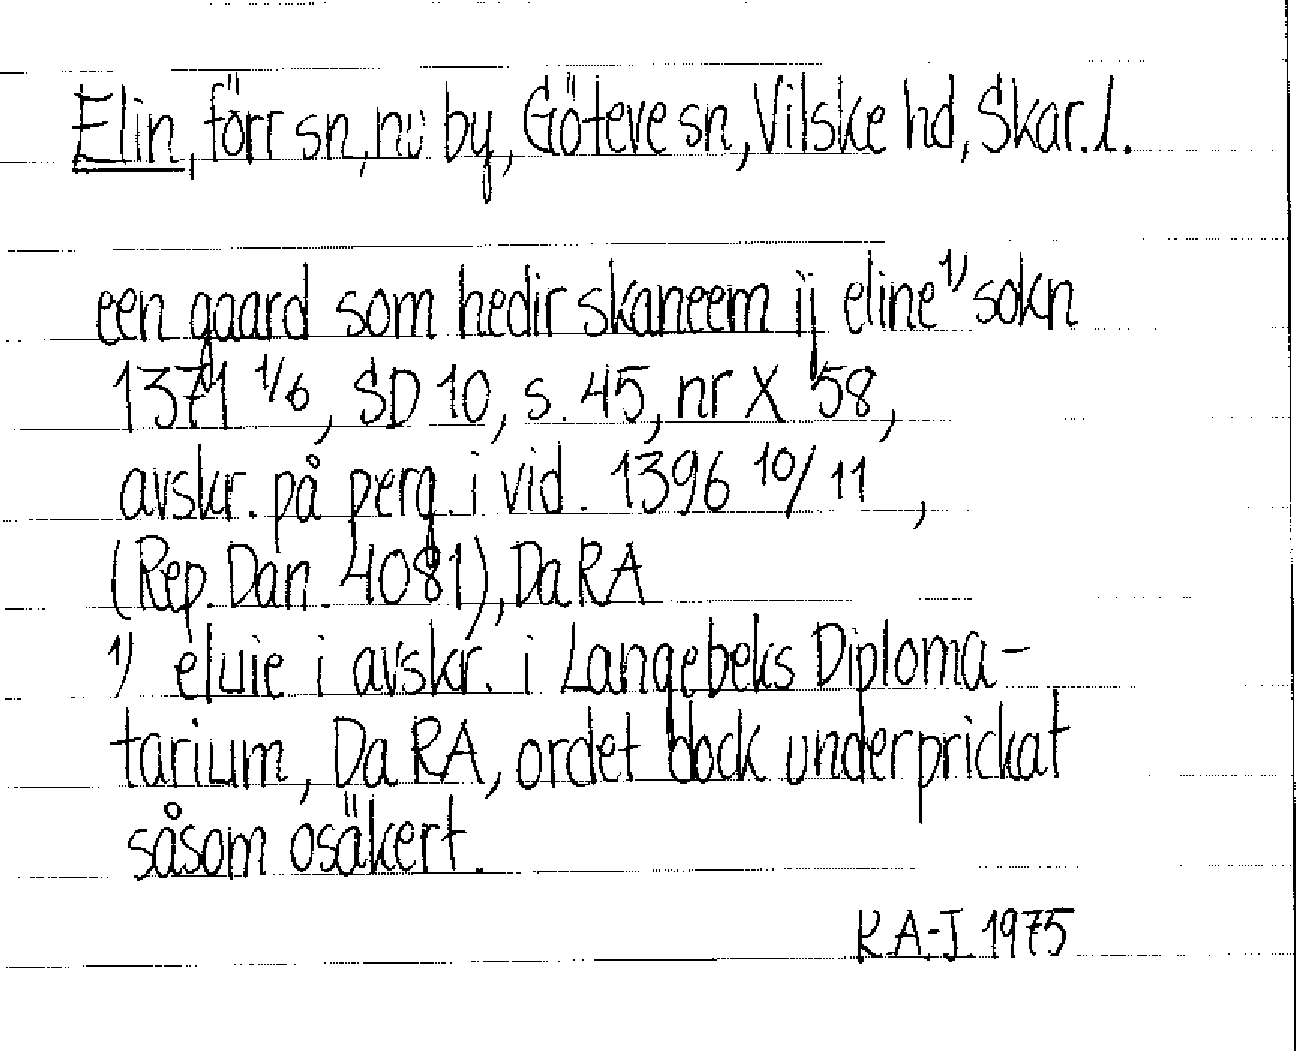 Elin, förr sn, nu by, Göteve sn, Vilske hd, Skar. l.
een gaard som hedir skaneem ij eline 1) sokn
1371 1/6, SD 10, s. 45, nr X 58,
avskr. på perg. i vid. 1396 10/11,
(Rep. Dan. 4081), Da RA
1) eluie i avskr. i Langebeks Diploma-
tarium, Da RA, ordet dock underprickat
såsom osäkert.
K A-J 1975